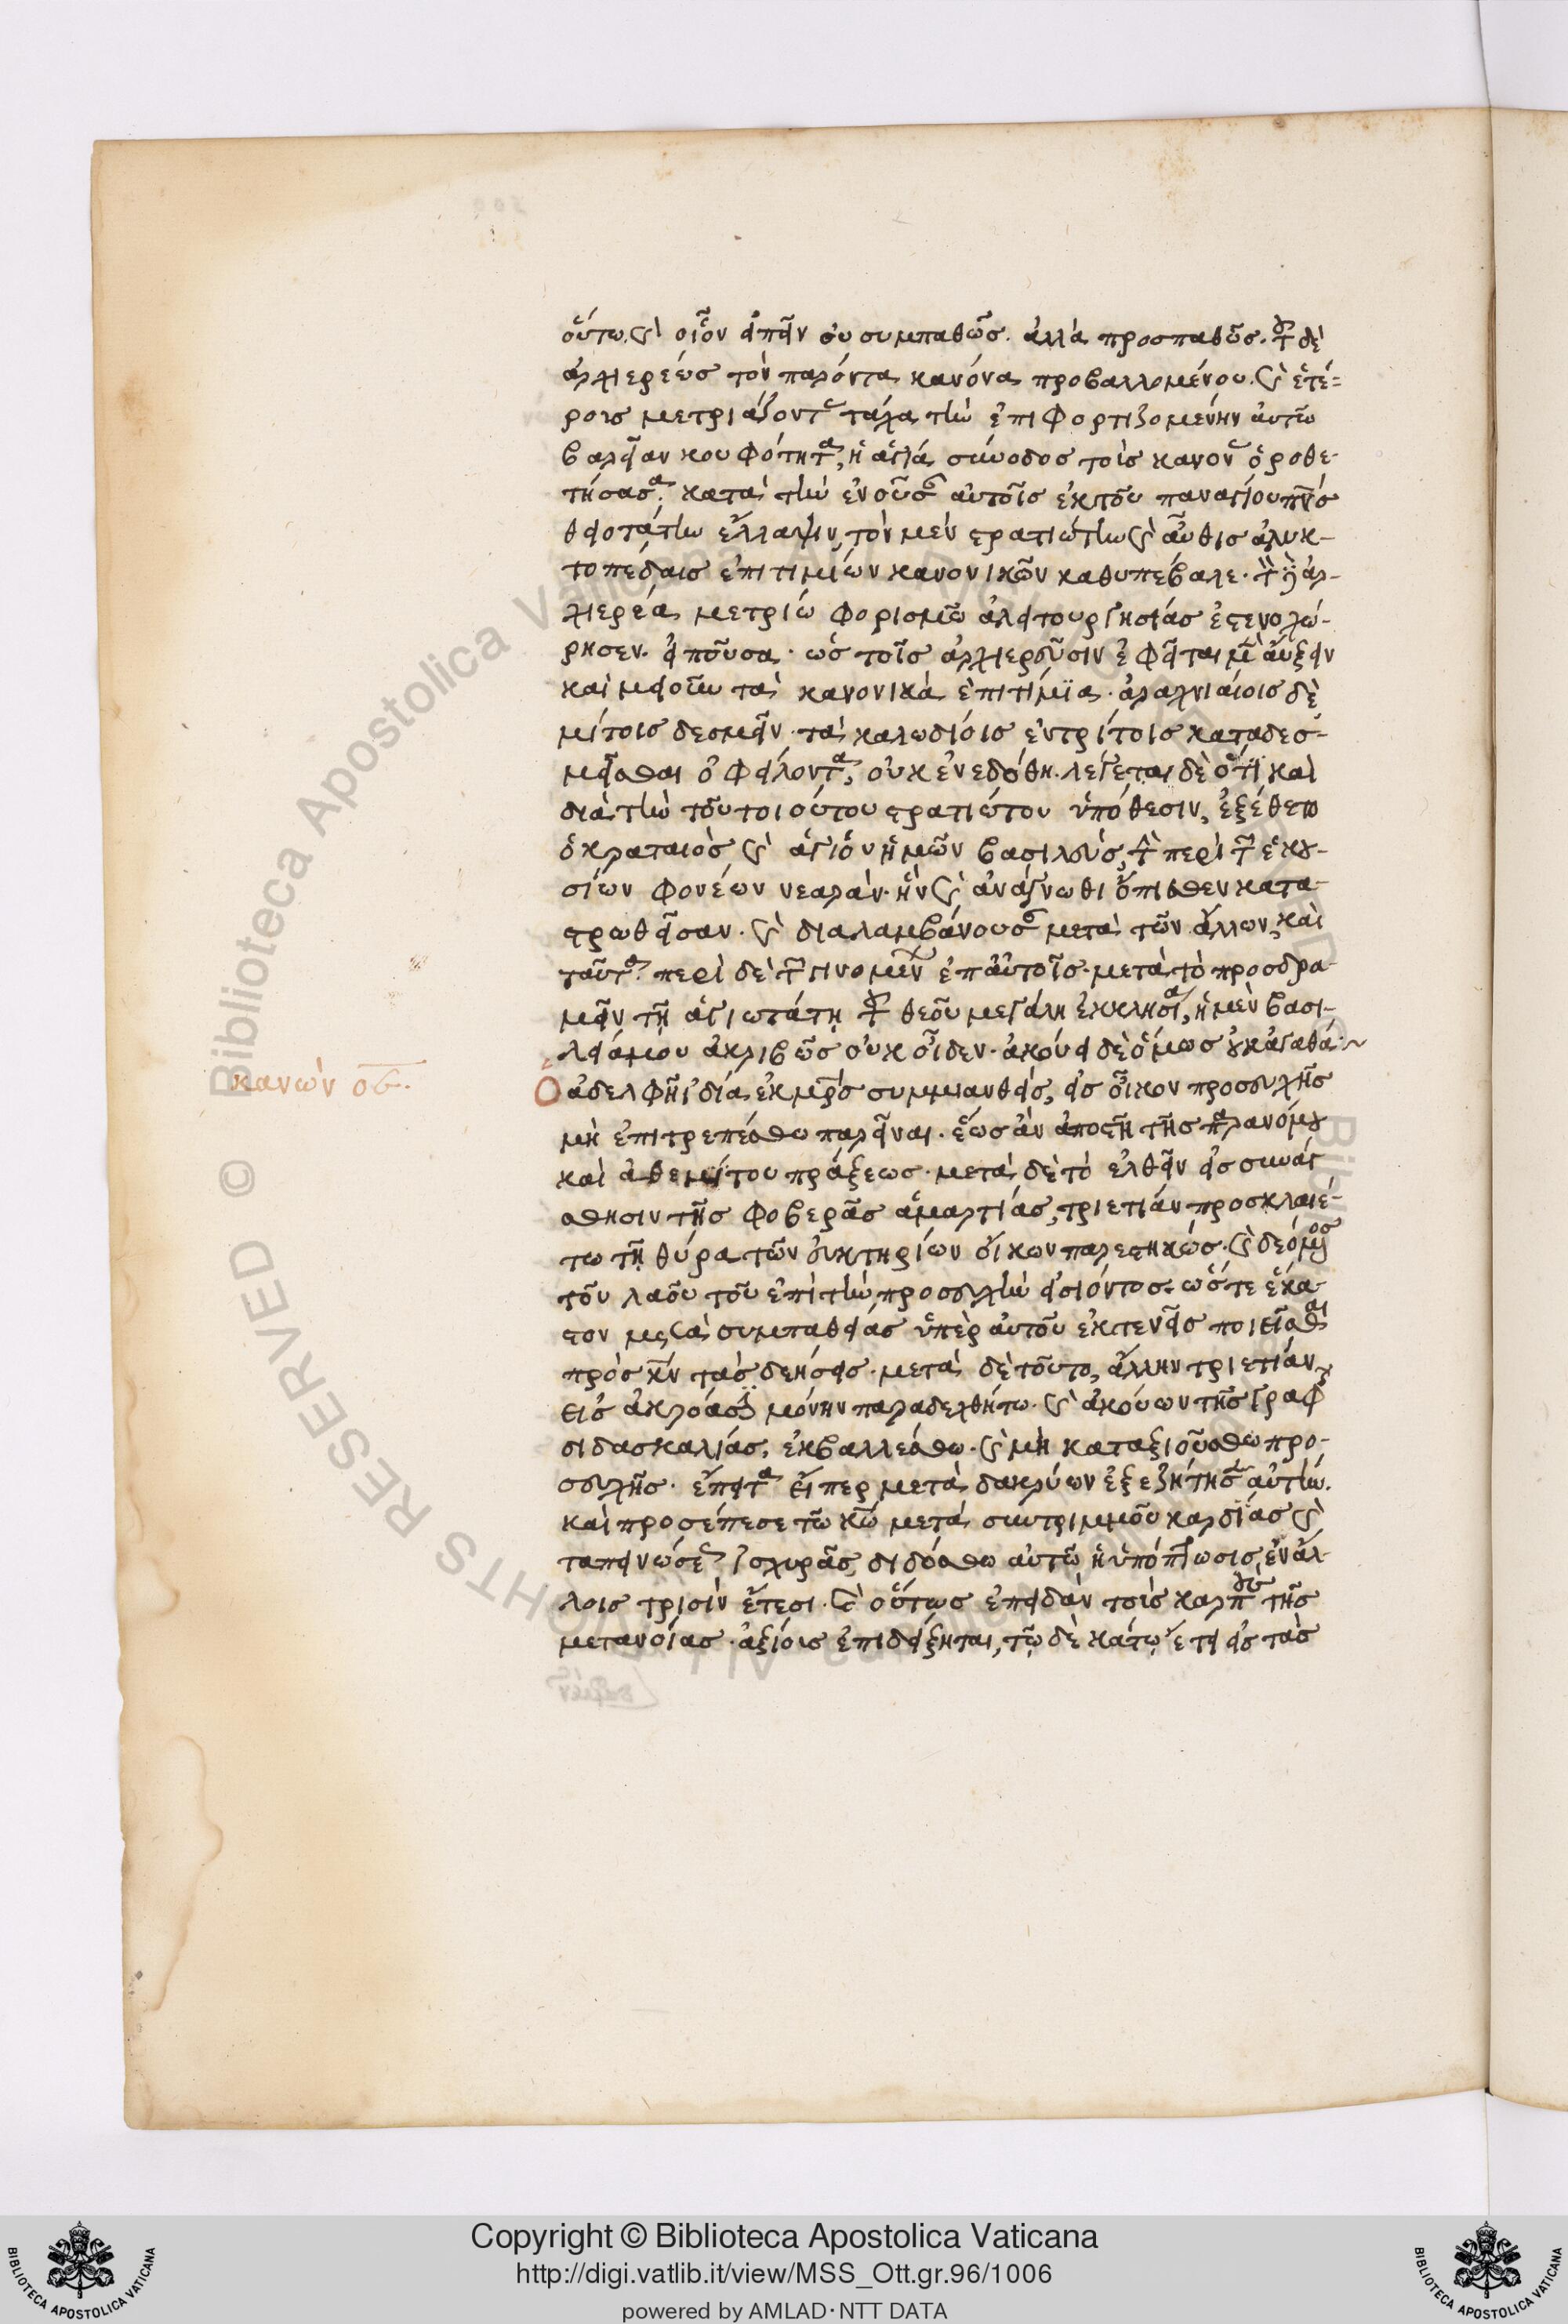 οὕτω. καὶ οἷον εἰπεῖν οὐ συμπαθῶς. ἀλλὰ προσπαθῶς. τοῦ δὲ
ἀρχιερέως τὸν παρόντα κανόνα προβαλλομένου. καὶ ἑτέ-
ροις μετριάζοντος τάχα τὴν ἐπιφορτιζομένην αὐτῶ
βαρεῖαν κουφότητα, ἡ ἁγία σύνοδος τοῖς κανόσι ὁροθε-
τήσασα. κατὰ τὴν ἐνοῦσαν αὐτοῖς ἐκ τοῦ παναγίου πνς
θειοτάτην ἔλλαμψιν, τὸν μὲν στρατιώτην καὶ αὖθις ἁλυκ-
τοπέδαις ἐπιτιμίων κανονικῶν καθυπέβαλε. τὸν δὲ ἀρ-
χιερέα μετρίω φορισμῶ ἀλειτουργησίας ἐστενοχώ-
ρησεν. εἰποῦσα. ὡς τοῖς ἀρχιερεῦσιν ἐφεῖται μὲν αὔξειν
καὶ μειοῦν τὰ κανονικὰ ἐπιτίμϊα. ἀραχνιαίοις δὲ
μίτοις δεσμεῖν τὰ καλωδίοις ἐντρίτοις καταδεσ-
μεῖσθαι ὀφείλοντα, οὐκ ἐνεδόθη. λέγεται δὲ ὅτι καὶ
διὰ τὴν τοῦ τοιούτου στρατιώτου ὑπόθεσιν, ἐξέθετο
ὁ κραταιὸς καὶ ἅγιος ἡμῶν βασιλεὺς, τὴν περὶ τῶν ἑκου-
σίων φονέων νεαρὰν. ἣν καὶ ἀνάγνωθι ὄπισθεν κατα-
στρωθεῖσαν. καὶ διαλαμβάνουσαν μετὰ τῶν ἄλλων, καὶ
ταῦτα. περὶ δὲ τῶν γινομένων ἐπ αὐτοῖς. μετὰ τὸ προσδρα-
μεῖν τῆ ἁγιωτάτη τοῦ θεοῦ μεγάλη ἐκκλησία, ἡ μὲν βασι-
λεία μου ἀκριβῶς οὐκ οἶδεν. ἀκούει δὲ ὅμως οὐκ ἀγαθά:~
κανὼν οε.
Ὁ ἀδελφῆ ἰδία ἐκ μρς συμμιανθεὶς, εἰς οἶκον προσευχῆς
μὴ ἐπιτρεπέσθω παρεῖναι. ἕως ἂν ἀποστῆ τῆς παρανόμου
καὶ ἀθεμίτου πράξεως. μετὰ δὲ τὸ ἐλθεῖν εἰς συναί-
σθησιν τῆς φοβερᾶς ἁμαρτίας, τριετίαν προσκλαιέ-
τω τῆ θύρα τῶν εὐκτηρίων οἴκων παρεστηκὼς. καὶ δεόμενος
τοῦ λαοῦ τοῦ ἐπὶ τὴν προσευχὴν εἰσιόντος. ὥστε ἕκα-
στον μετὰ συμπαθείας ὑπὲρ αὐτοῦ ἐκτενεῖς ποιεῖσθαι
πρὸς κν τὰς δεήσεις. μετὰ δὲ τοῦτο, ἄλλην τριετίαν
εἰς ἀκρόασιν μόνην παραδεχθήτω. καὶ ἀκούων τῆς γραφῆς
διδασκαλίας, ἐκβαλλέσθω. καὶ μὴ καταξιούσθω προ-
σευχῆς. ἔπειτα εἴπερ μετὰ δακρύων ἐξεζήτησεν αὐτὴν.
καὶ προσέπεσε τῶ κω μετὰ συντριμμοῦ καρδίας καὶ
ταπεινώσεως ἰσχυρᾶς, διδόσθω αὐτῶ ἡ ὑπόπτωσις, ἐν ἄλ-
λοις τρισὶν ἔτεσι. καὶ οὕτως ἐπειδὰν τοὺς καρποὺς τῆς
μετανοίας ἀξίους ἐπιδείξηται, τῷ δεκάτῳ ἔτει εἰς τὰς